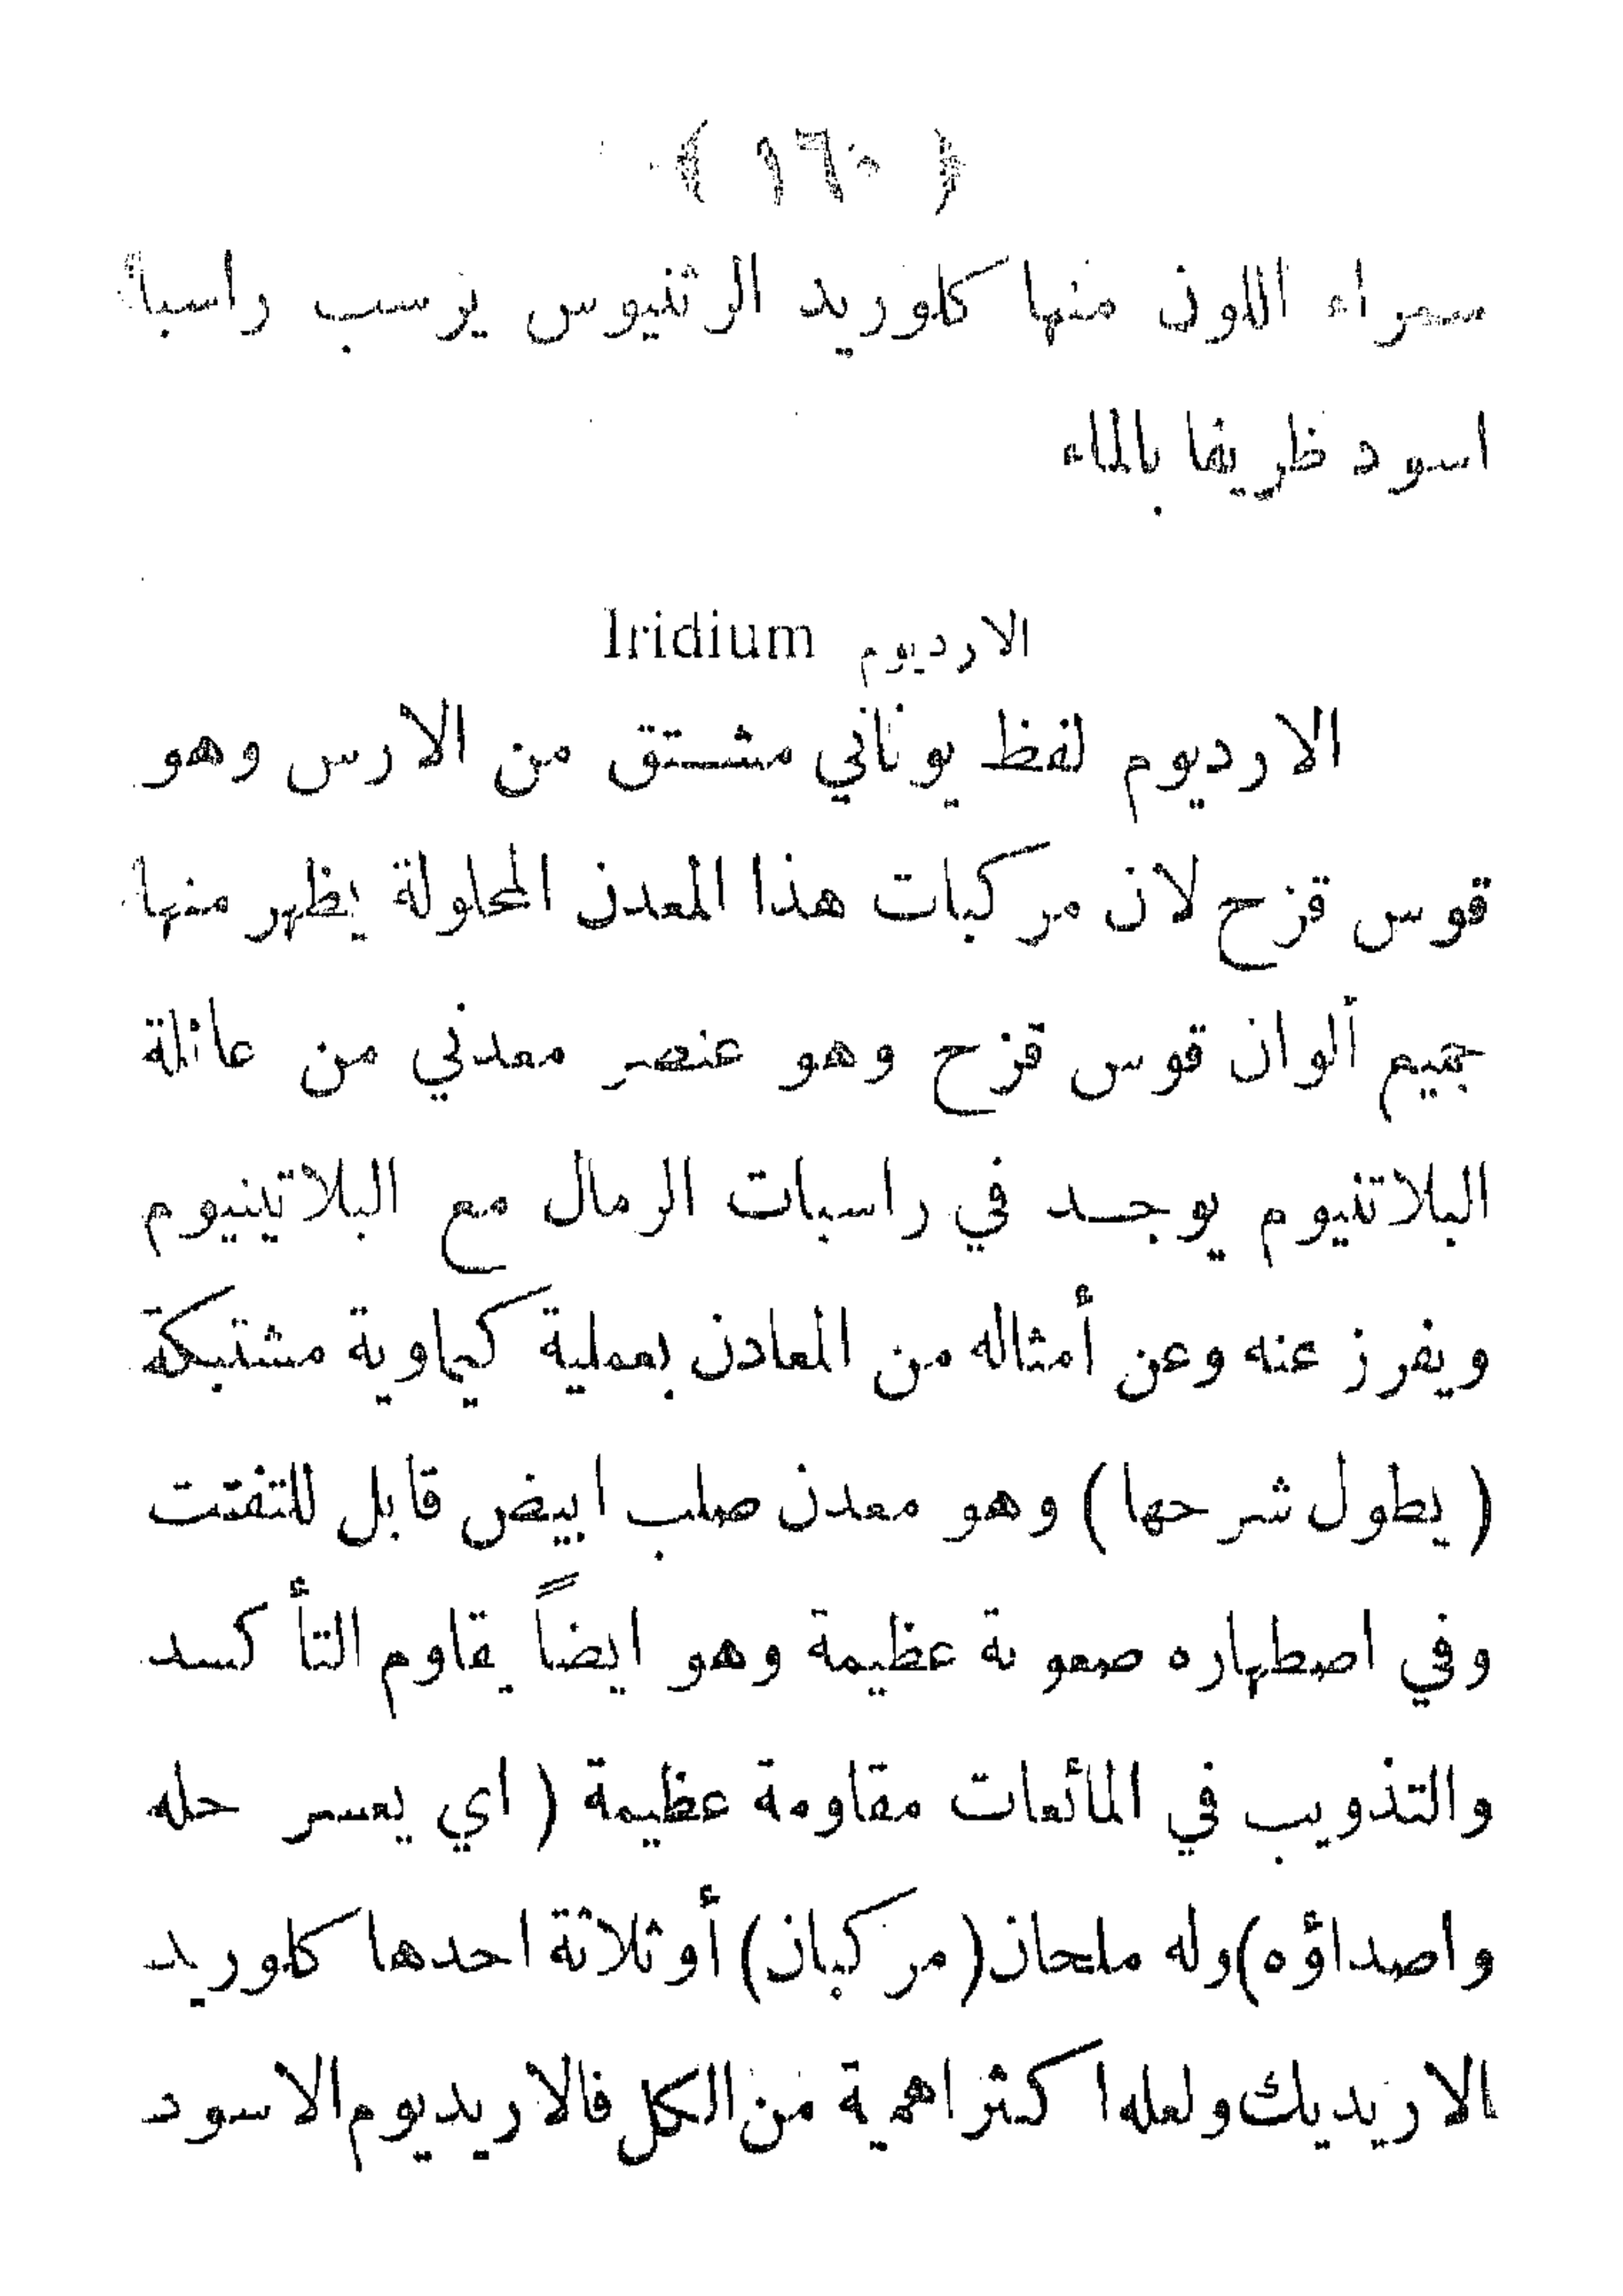 ﴿ ١٦٠ ﴾
سمراء اللون منها كلوريد الرثنيوس يرسب راسبا
اسود ظريفا بالماء
الارديوم Iridium
الارديوم لفظ يوناني مشتق من الارس وهو
قوس قزح لان مركبات هذا المعدن المحلولة يظهر منها
جميع ألوان قوس قزح وهو عنصر معدني من عائلة
البلاتنيوم يوجد في راسبات الرمال مع البلاتينيوم
ويفرز عنه وعن أمثاله من المعادن بعملية كيماوية مشتبكة
( يطول شرحها ) وهو معدن صلب ابيض قابل للتفتت
وفي اصطهاره صعوبة عظيمة وهو ايضاً يقاوم التأكسد
والتذويب في المائعات مقاومة عظيمة ( اي يعسر حله
واصداؤه) وله ملحان ( مركبان ) أو ثلاثة احدها كلوريد
الاريديك ولعله اكثر اهمية من الكل فالاريديوم الاسود